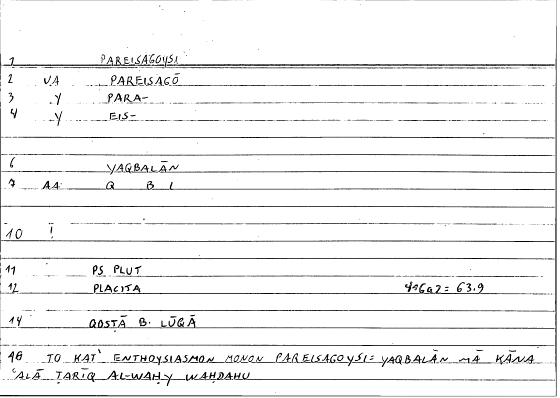 1 PAREISAGOYSI
2 VA PAREISAGŌ
3 .Y PARA-
4 .Y EIS-
6 YAQBALĀN
7 AA Q B L
10 !
11 PS PLUT
12 PLACITA 416a2 = 63.9
14 QOSṬĀ B. LŪQĀ
16 TO KAT' ENTHOYSIASMON MONON PAREISAGOYSI = YAQBALĀN MĀ KĀNA
'ALĀ ṬARĪQ AL-WAḤY WAḤDAHU